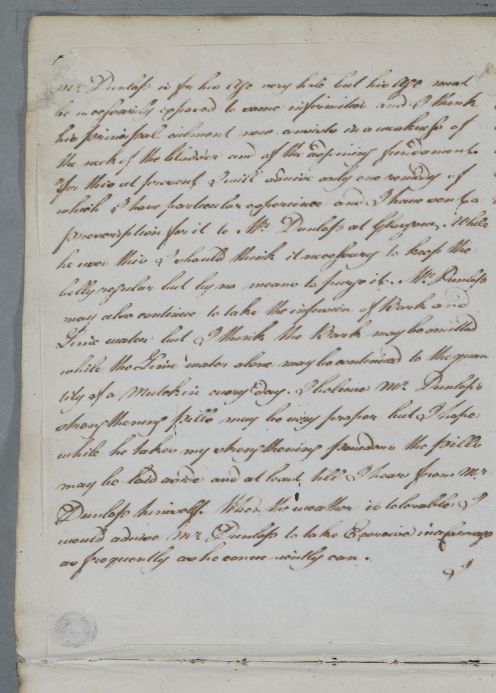 Mr. Dunlop is for his Age very hale but his Age must
be necessarily exposed to some infirmities and I think
his principal ailment now consists in a weakness of
the neck of the bladder and of the adjoining fundament.
For this at present I will advise only one remedy of
which I have particular experience and I have sent a
prescription for it to Mr. Dunlop at Glasgow. While
he uses this I should think it necessary to keep the
belly regular but by no means to purge it. Mr. Dunlop
may also continue to take the infusion of Bark and
Lime water but I think the Bark may be omitted
while the Lime water alone may be continued to the quan
tity of a Mutchkin every day. I believe Mr. Dunlop's
strengthening pills may be very proper but I hope
while he takes my strengthening powders the pills
may be laid aside and at least till I hear from Mr.
Dunlop himself. When the weather is tolerable I
would advise Mr. Dunlop to take Exercise in a Carriage
as frequently as he conveniently can.